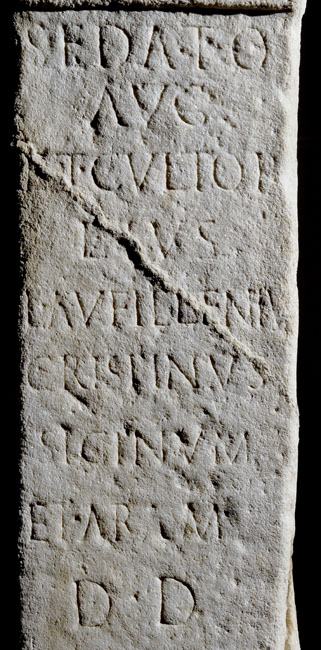 SEDATO
AVG
ET·CVLTOR
EIVS
L·AVFILLENIV
CRISPINVS
SIGINVM
ET·ARAM
D·D